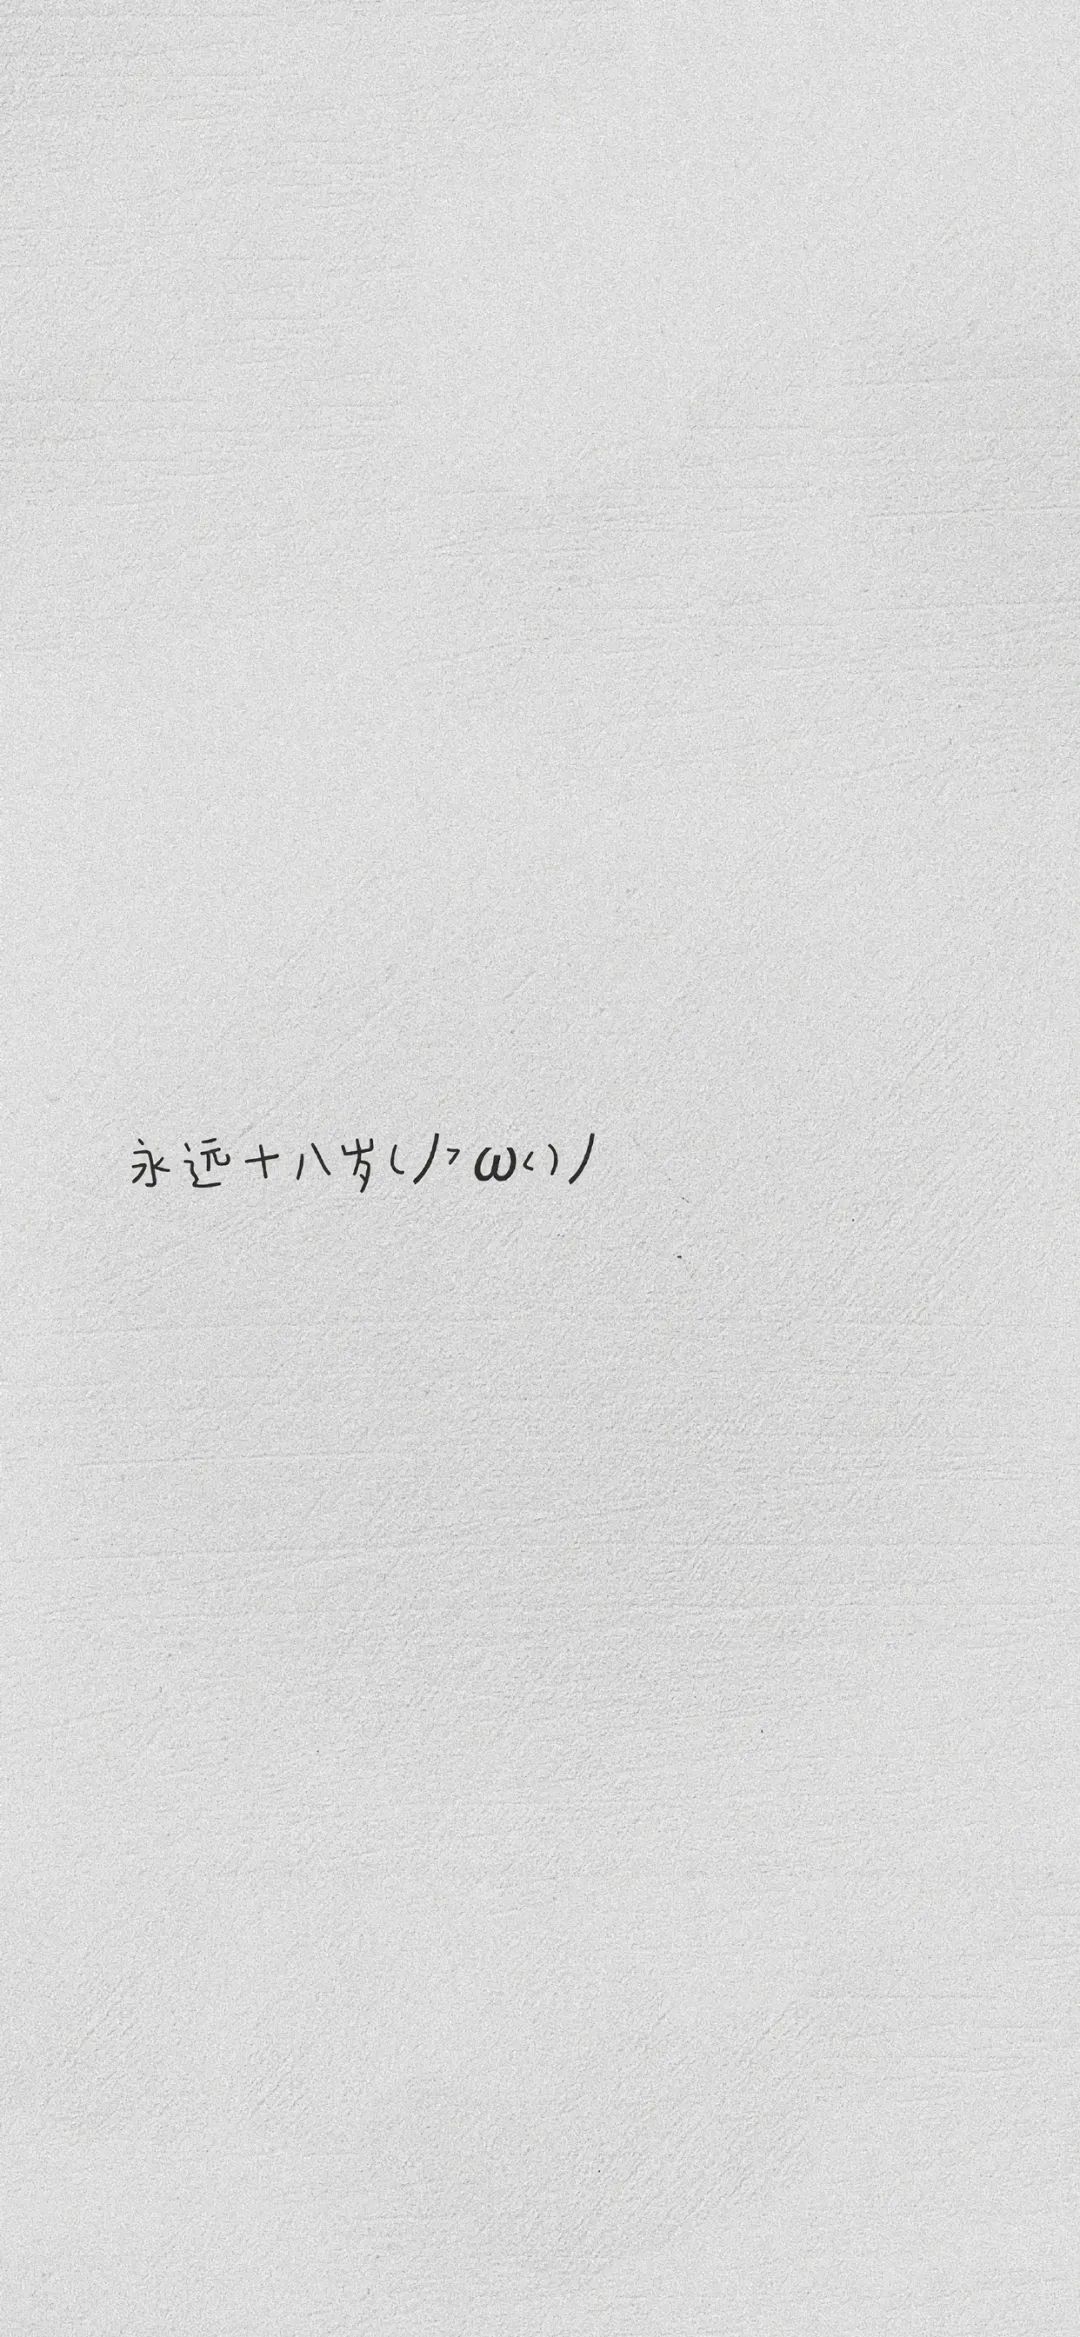 永远十八岁(ﾉ>ω<)ﾉ